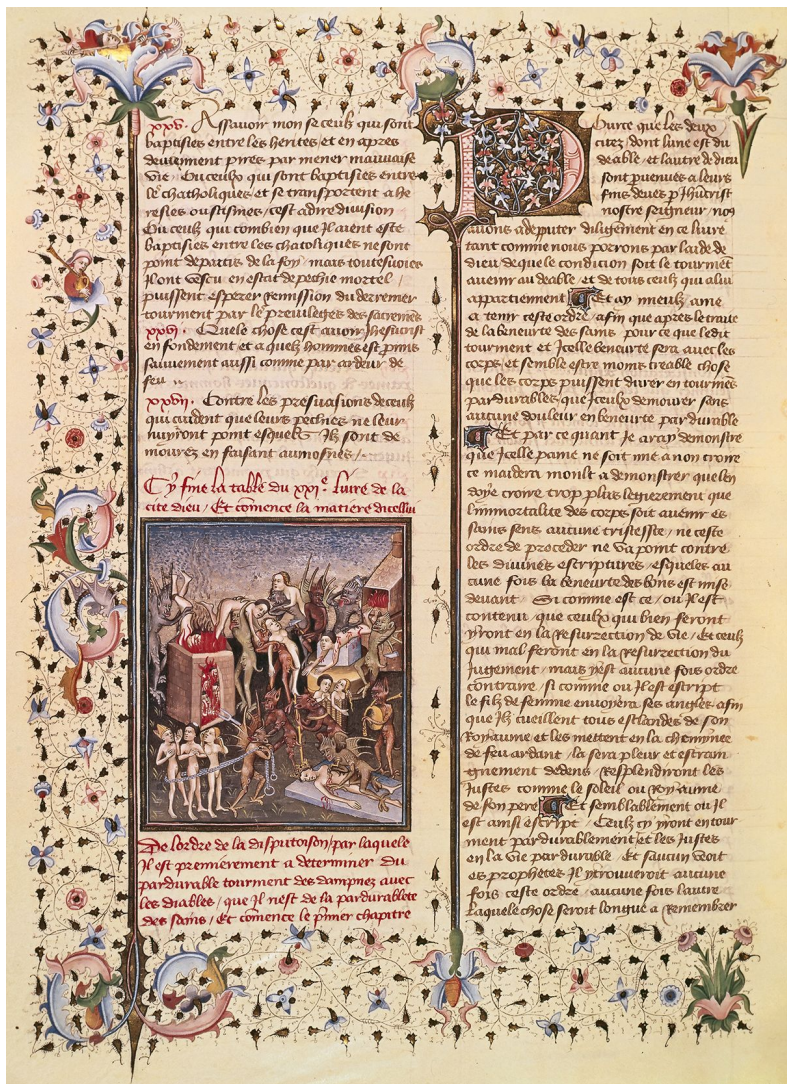 xxv. Assavoir mon se ceulx qui sont
baptisies entre les herites et en apres
deviennent pires par mener mauvaise
vie Ou ceulx qui sont baptisies entre
les chatholiques et se transportent a he
resies ou scismes / cest adire division
Ou ceulx qui combien que Ilz aient este
baptisies entre les chatoliques ne sont
point departis de la foy / mais toutesvoies
Ilz ont vescu en estat de pechie mortel /
puissent esperer remission du derrenier
tourment par le previleges des sacremens
xxvi. Quele chose cest avoir Jhesucrist
en fondement et a quelz hommes est promis
sauvement aussi comme par ardeur de
feu
xxvii. Contre les persuasions de ceulx
qui cuident que leurs pechies ne leur
nuyront point esquelz Ilz sont de
mourez en faisant aumosnes /
Cy fine la table du xxie. livre de la
cite dieu / Et comence la matiere dicellui
De lordre de la disputoison / par laquele
Il est premierement a determiner du
pardurable tourment des dampnez avec
les diables / que Il nest de la pardurablete
des sains / Et comence le pmier chapitre
Pource que les deux
citez / dont lune est du
deable / et lautre de dieu
sont parvenues a leurs
fins deues p Jhucrist
nostre seigneur / nos
avons a deputer diligement en ce livre
tant comme nous porrons par laide de
dieu / de quele condition soit le tourmet
avenir au deable / et de tous ceulx qui a lui
appartiennent Et ay mieulx ame
a tenir ceste ordre / afin que apres le traitie
de la beneurte des sains pource que ledit
tourment et Icelle beneurte sera avec les
corps / et semble estre moins creable chose
que les corps puissent durer en tourmes
pardurables / que Iceulx demourer sans
aucune douleur en beneurte pardurable
Et par ce quant Je aray demonstre
que Icelle paine ne soit mie a non croire
ce maidera moult a demonstrer que len
doye croire trop plus legierement que
limmortalite des corps soit avenir es
sains sens aucune tristesse / ne ceste
ordre de proceder ne va point contre
les divines escriptures / esqueles au
cune fois la beneurte des bons est mise
devant Si comme est ce / ou Il est
contenu que ceulx qui bien feront
yront en la Resurrection de vie / Et ceulx
qui mal feront en la Resurrection du
Jugement / mais yest aucune fois ordre
contraire / si comme ou Il est escript
le filz de femme envoyera ses angles / afin
que Ilz cueillent tous esclandes de son
Royaume et les mettent en la cheminee
de feu ardant / la sera pleur et estrain
gnement de dens / Resplendiront les
Justes comme le soleil ou Royaume
de son pere Et semblablement ou Il
est ainsi escript / Ceulx cy yront en tour
ment pardurablement et les Justes
en la vie pardurable Et saucun veoit
es prophetes Il y trouveroit aucune
fois ceste ordre / aucune fois lautre
laquele chose seroit longue a Remembrer